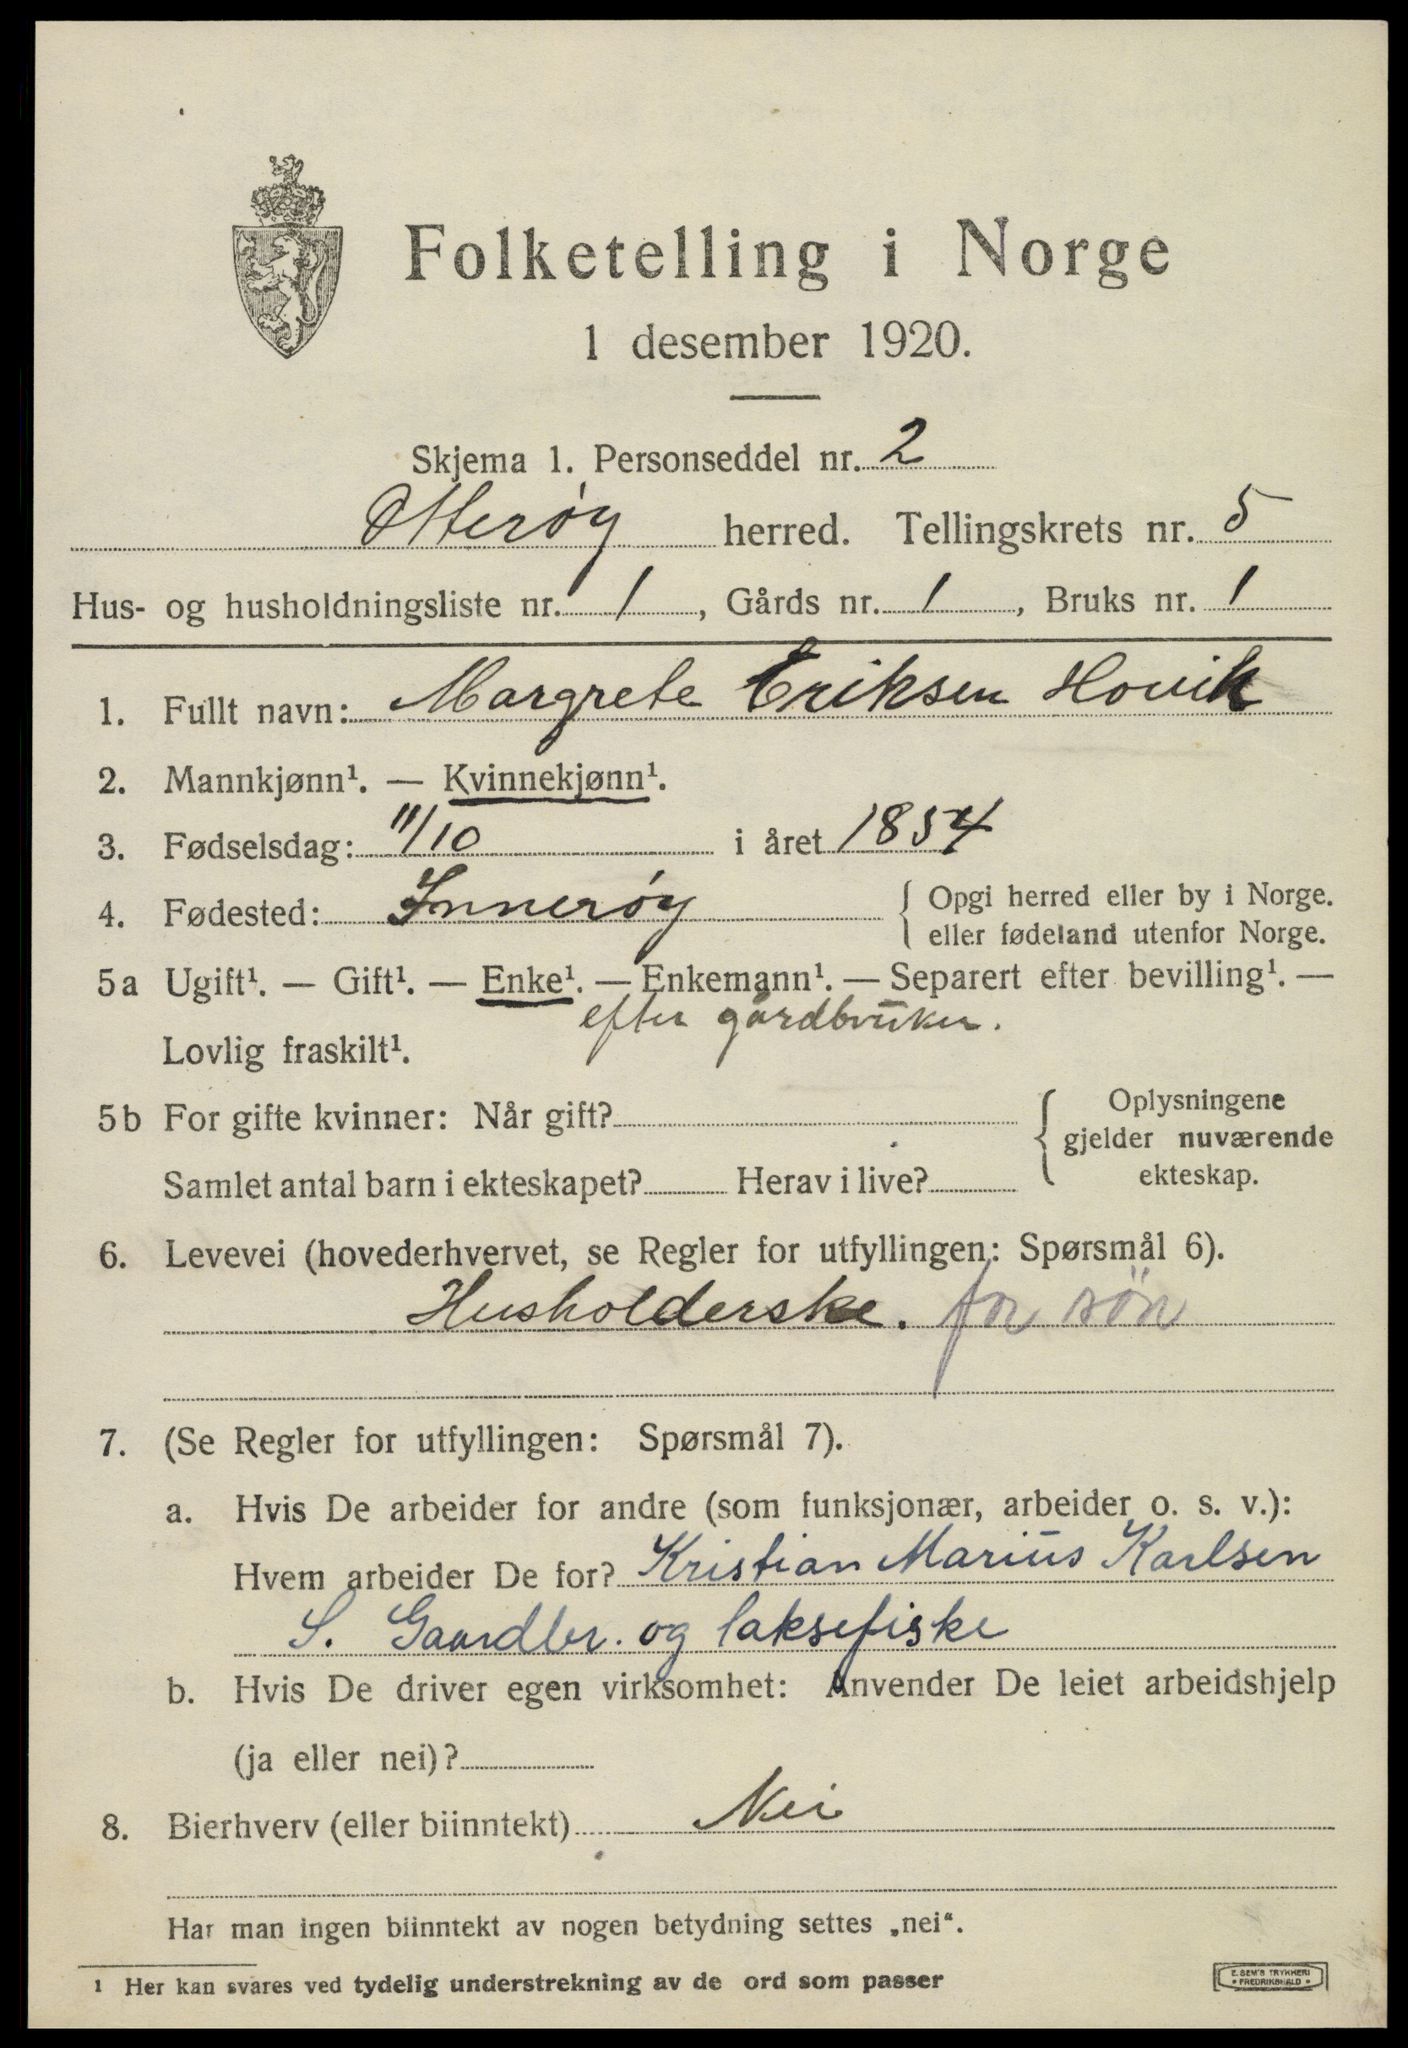 Folketelling i Norge
1 desember 1920.
Skjema 1. Personseddel nr. 2
Otterøy herred. Tellingskrets nr. 5
Hus- og husholdningsliste nr. 1, Gårds nr. 1, Bruks nr. 1
1. Fullt navn: Margrete Eriksen Hovik
2. Mannkjønn¹. — Kvinnekjønn¹.
3. Fødselsdag: 11/10 i året 1854
4. Fødested: Innerøy { Opgi herred eller by i Norge.
eller fødeland utenfor Norge.
5a Ugift¹. — Gift¹. — Enke¹. — Enkemann¹. — Separert efter bevilling¹. —
efter gårdbruker.
Lovlig fraskilt¹.
5b For gifte kvinner: Når gift? { Oplysningene
gjelder nuværende
ekteskap.
Samlet antal barn i ekteskapet? Herav i live?
6. Levevei (hovederhvervet, se Regler for utfyllingen: Spørsmål 6).
Husholderske. for søn
7. (Se Regler for utfyllingen: Spørsmål 7).
a. Hvis De arbeider for andre (som funksjonær, arbeider o. s. v.):
Hvem arbeider De for? Kristian Marius Karlsen
S. Gaardbr. og laksefiske
b. Hvis De driver egen virksomhet: Anvender De leiet arbeidshjelp
(ja eller nei)?
8. Bierhverv (eller biinntekt) Nei
Har man ingen biinntekt av nogen betydning settes „nei“.
¹ Her kan svares ved tydelig understrekning av de ord som passer
E. SEM'S TRYKKERI
• FREDRIKSHALD •